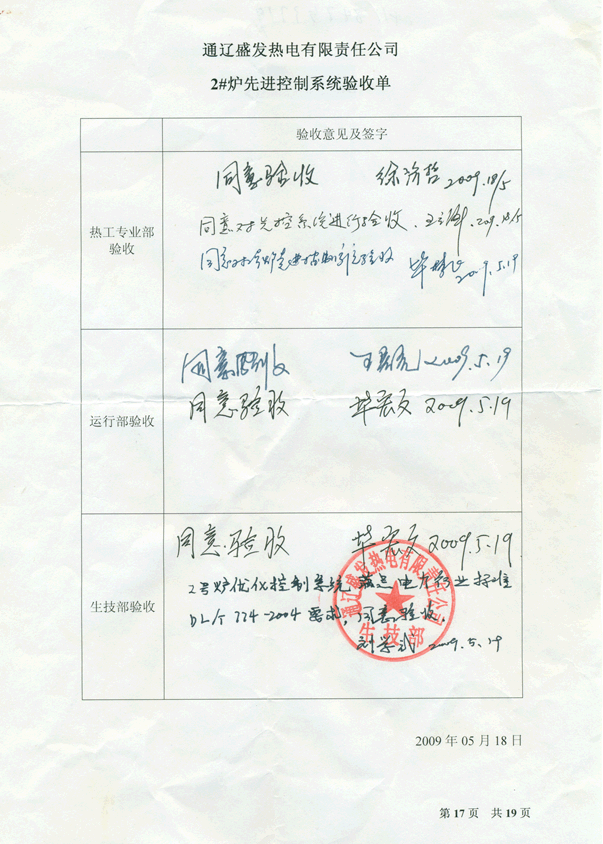 通辽盛发热电有限责任公司
2#炉先进控制系统验收单
验收意见及签字
热工专业部
验收
同意验收 2009.18/5
同意对先控系统进行验收. 2009.18/5
同意对 验收 2009.5.19
运行部验收
同意 验收 2009.5.19
同意验收 华宏文 2009.5.19
生技部验收
同意验收 华宏文 2009.5.19
2号炉优化控制系统, 电力行业标准
DL/T 774-2004 要求, 同意验收.
2009.5.19
通辽盛发热电有限责任公司
生技部
2009年05月18日
第17页 共19页